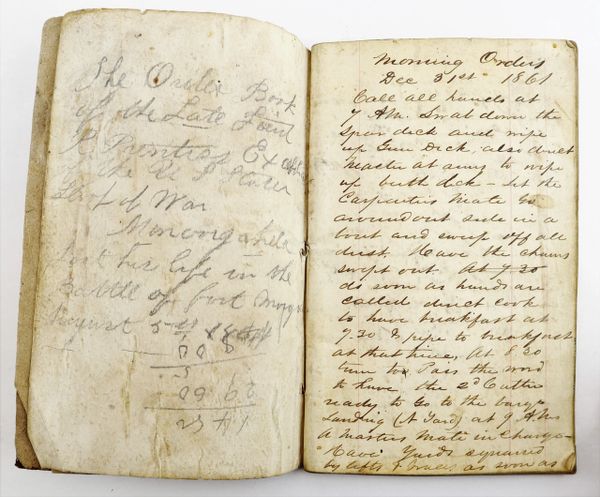 The Order Book
of the Late Lieut
R Prentiss Ex officer
of the U S Steam
Sloop of War
Monongahela
lost his life in the
Battle of fort Morgan
August 5th 1864
Morning Orders
Dec 31st 1861
Call all hands at
7 AM. Swab down the
Spar deck and wipe
up Gun Deck. also direct
Master at arms to wipe
up berth deck - Let the
Carpenters Mate Go
around out side in a
boat and sweep off all
dust. Have the chains
swept out. At 7 30
As soon as hands are
called direct cook
to have breakfast at
7.30 & pipe to breakfast
at that time, At 8.30
turn to Pass the word
to have the 2d Cutter
ready to Go to the barge
Landing (N Yard) at 9 AM
A masters mate in Charge -
Have Yards squared
by lifts & braces, as soon as